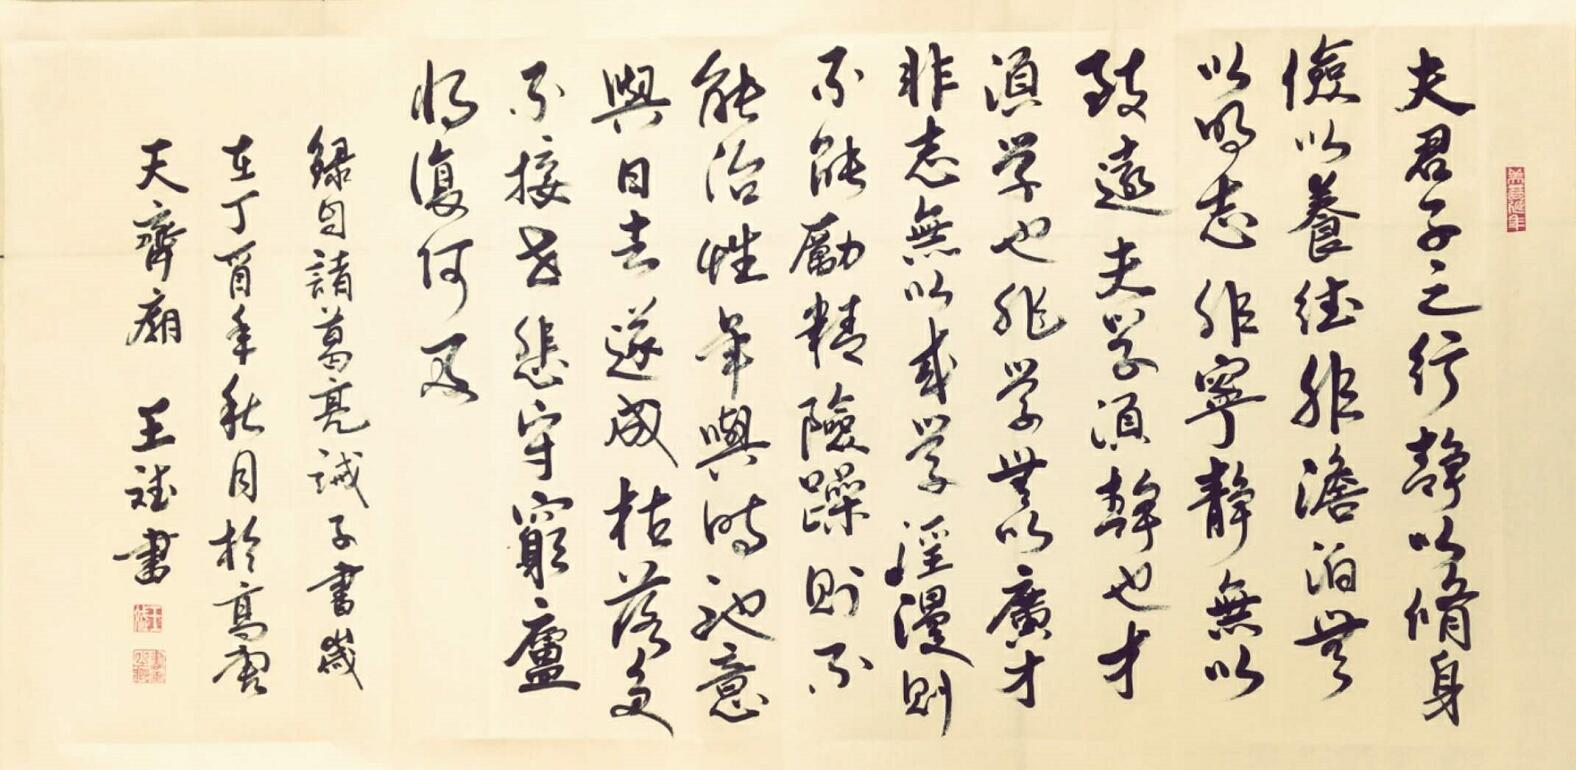 夫君子之行靜以脩身
儉以養德非澹泊無
以明志非寧靜無以
致遠夫學須靜也才
須學也非學無以廣才
非志無以成學淫漫則
不能勵精險躁則不
能治性年與時馳意
與日去遂成枯落多
不接世悲守窮廬
將復何及
録自諸葛亮誡子書歲
在丁酉年秋月於高
天齊廟 王 書